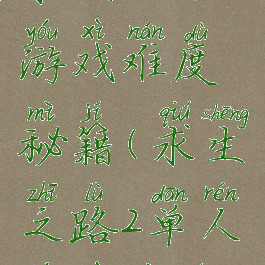 yóu xì nán dù
游戏难度
mì jí qiú shēng
秘籍(求生
zhī lù dān rén
之路2单人